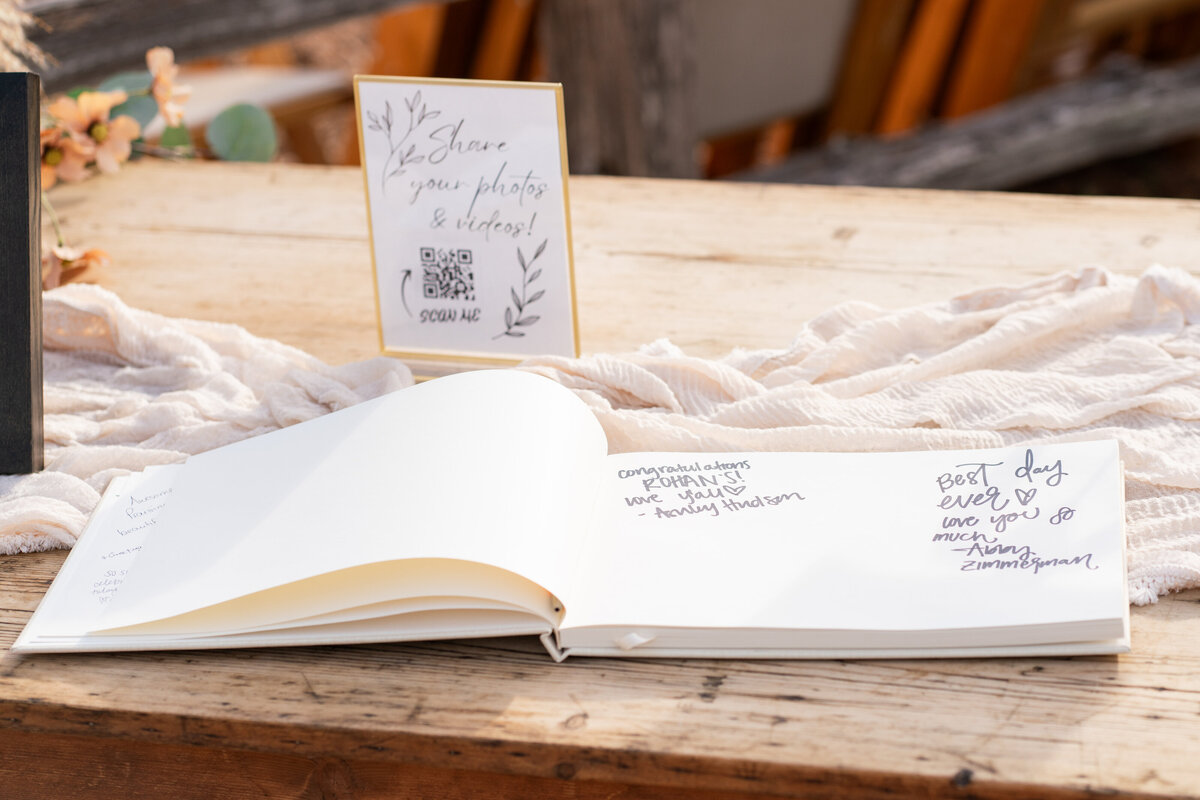 Share
your photos
& videos!
SCAN ME
congratulations
ROHAN'S!
love y'all ♡
- Ashley Hudson
BEST day
ever ♡
love you so
much
-Abby
zimmerman